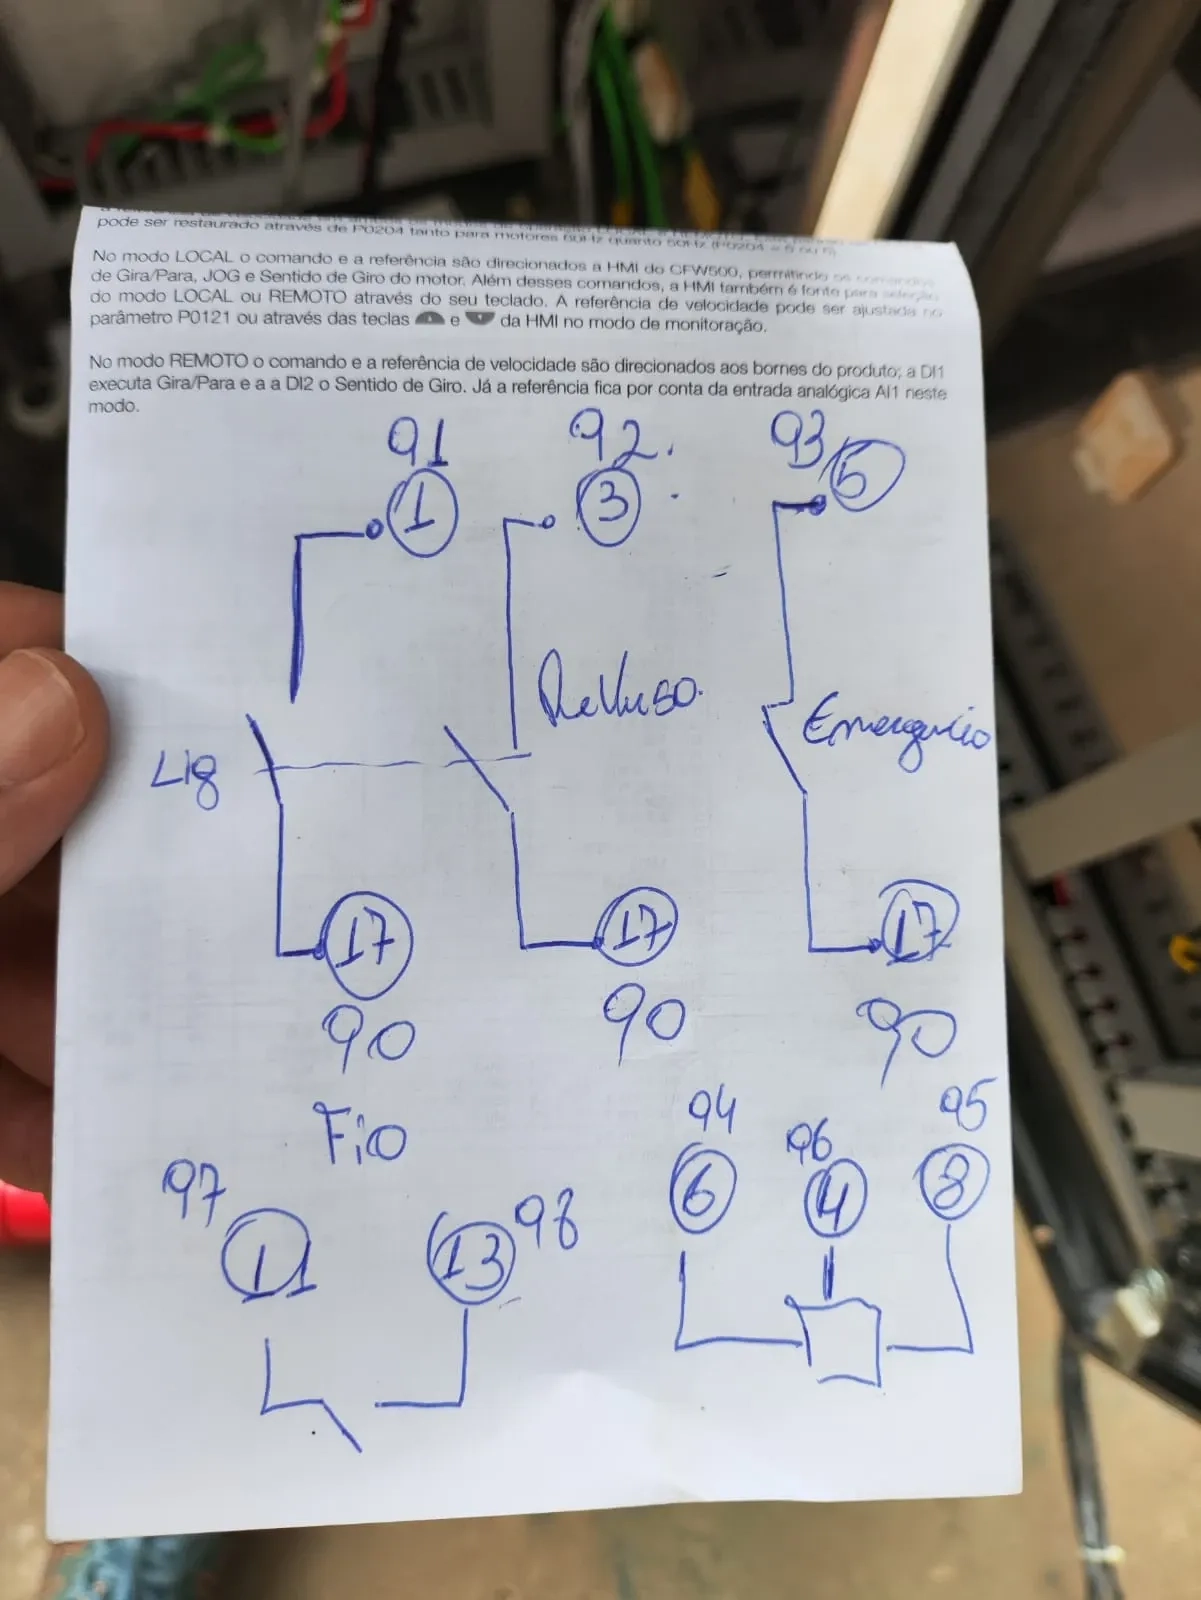 pode ser restaurado através de P0204 tanto para motores 60Hz quanto 50Hz (P0204 = 5 ou 6).
No modo LOCAL o comando e a referência são direcionados a HMI do CFW500, permitindo os comandos
de Gira/Para, JOG e Sentido de Giro do motor. Além desses comandos, a HMI também é fonte para seleção
do modo LOCAL ou REMOTO através do seu teclado. A referência de velocidade pode ser ajustada no
parâmetro P0121 ou através das teclas e da HMI no modo de monitoração.
No modo REMOTO o comando e a referência de velocidade são direcionados aos bornes do produto; a DI1
executa Gira/Para e a a DI2 o Sentido de Giro. Já a referência fica por conta da entrada analógica AI1 neste
modo.
91 92. 93
1 3 5
Lig
Emergncio
17 17 17
90 90 90
Fio
94 96 95
6 4 8
97 98
11 13